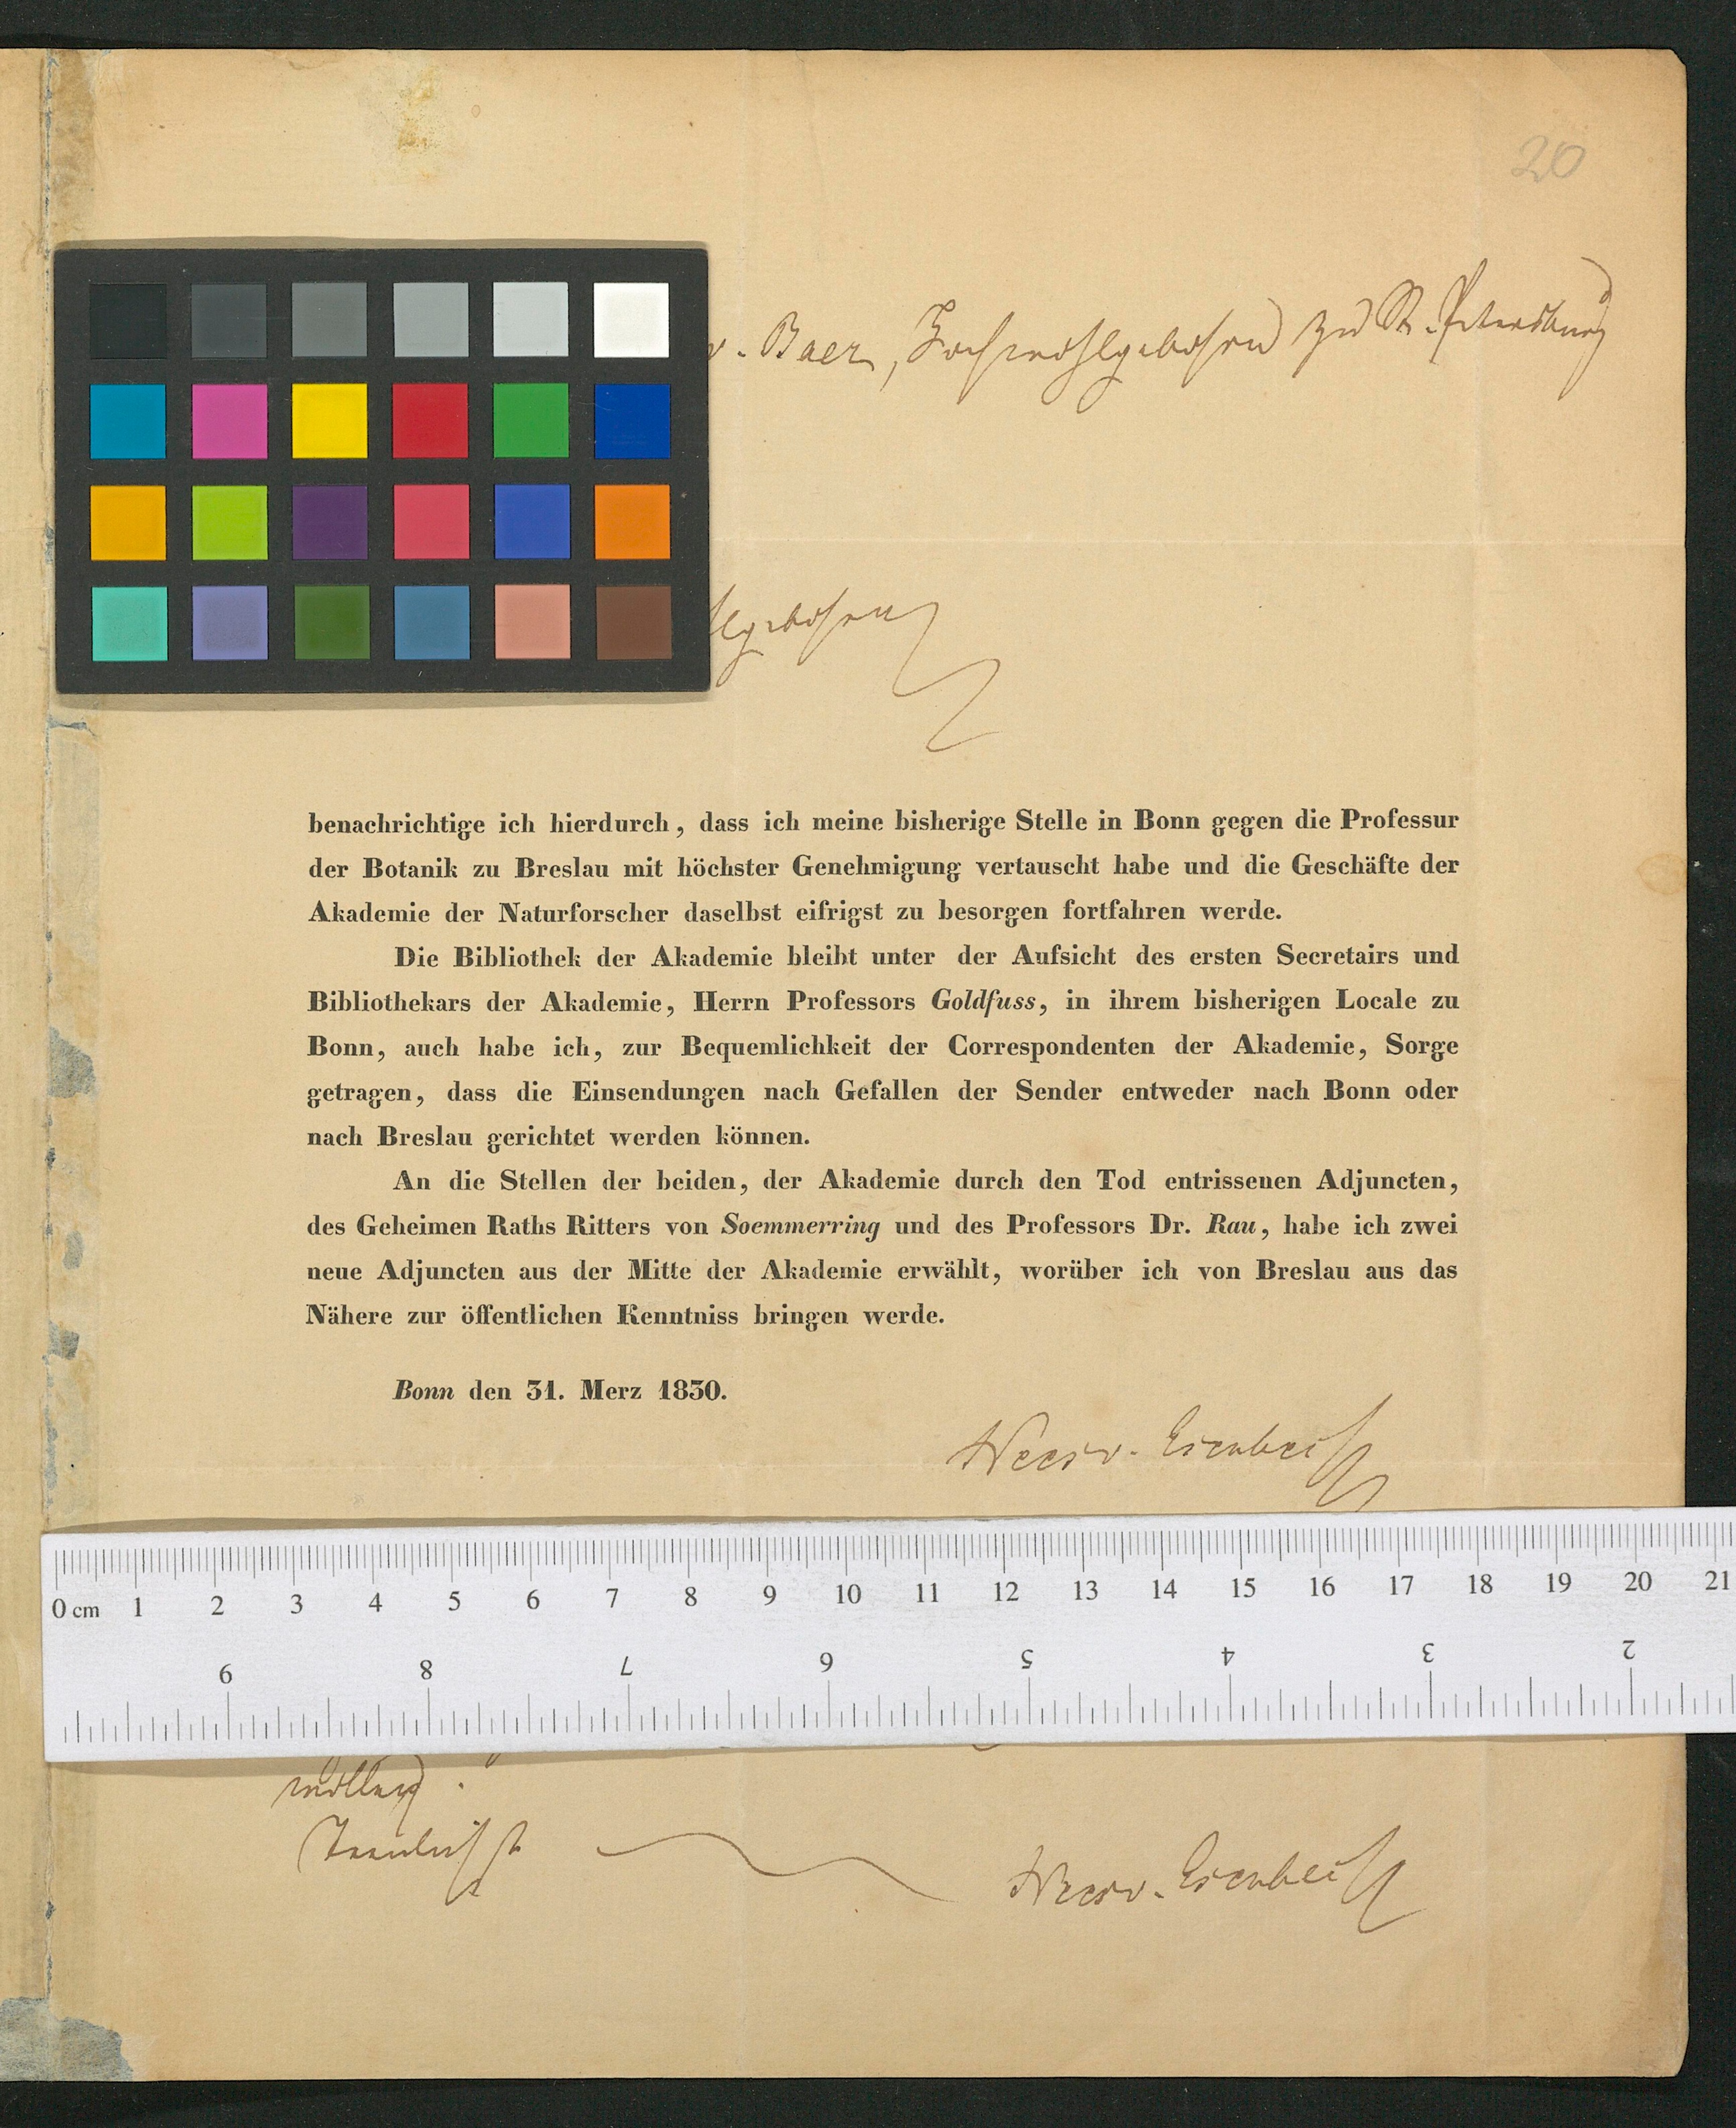 20
v. Baer, Hochwohlgeboren zu St. Petersburg
lgeboren
benachrichtige ich hierdurch, dass ich meine bisherige Stelle in Bonn gegen die Professur
der Botanik zu Breslau mit höchster Genehmigung vertauscht habe und die Geschäfte der
Akademie der Naturforscher daselbst eifrigst zu besorgen fortfahren werde.
Die Bibliothek der Akademie bleibt unter der Aufsicht des ersten Secretairs und
Bibliothekars der Akademie, Herrn Professors Goldfuss, in ihrem bisherigen Locale zu
Bonn, auch habe ich, zur Bequemlichkeit der Correspondenten der Akademie, Sorge
getragen, dass die Einsendungen nach Gefallen der Sender entweder nach Bonn oder
nach Breslau gerichtet werden können.
An die Stellen der beiden, der Akademie durch den Tod entrissenen Adjuncten,
des Geheimen Raths Ritters von Soemmerring und des Professors Dr. Rau, habe ich zwei
neue Adjuncten aus der Mitte der Akademie erwählt, worüber ich von Breslau aus das
Nähere zur öffentlichen Kenntniss bringen werde.
Bonn den 31. Merz 1830.
Nees v. Esenbeck
0 cm 1 2 3 4 5 6 7 8 9 10 11 12 13 14 15 16 17 18 19 20 21
9 8 7 6 5 4 3 2
wollen.
Nees v. Esenbeck